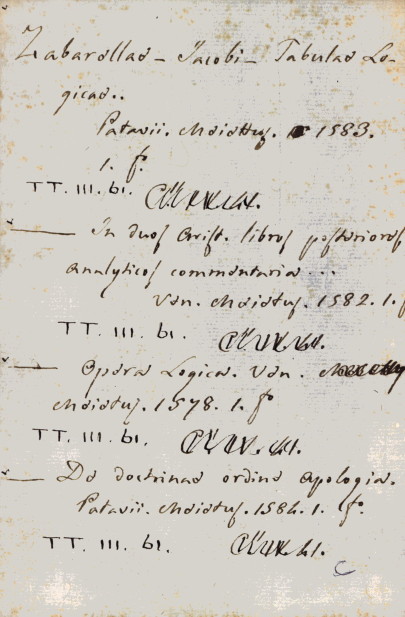 Zabarellae - Jacobi - Tabulae Lo-
gicae..
Patavii. Meiettus. 1583.
1. fº.
TT. III. 61.
——— In duos Arist. libros posteriores
Analyticos commentaria ...
Ven. Meietus. 1582. 1. f
TT. III. 61.
——— Opera Logica. Ven.
Meietus. 1578. 1. fº
TT. III. 61.
——— De doctrinae ordine Apologia.
Patavii. Meietus. 1584. 1. fº.
TT. III. 61.
C